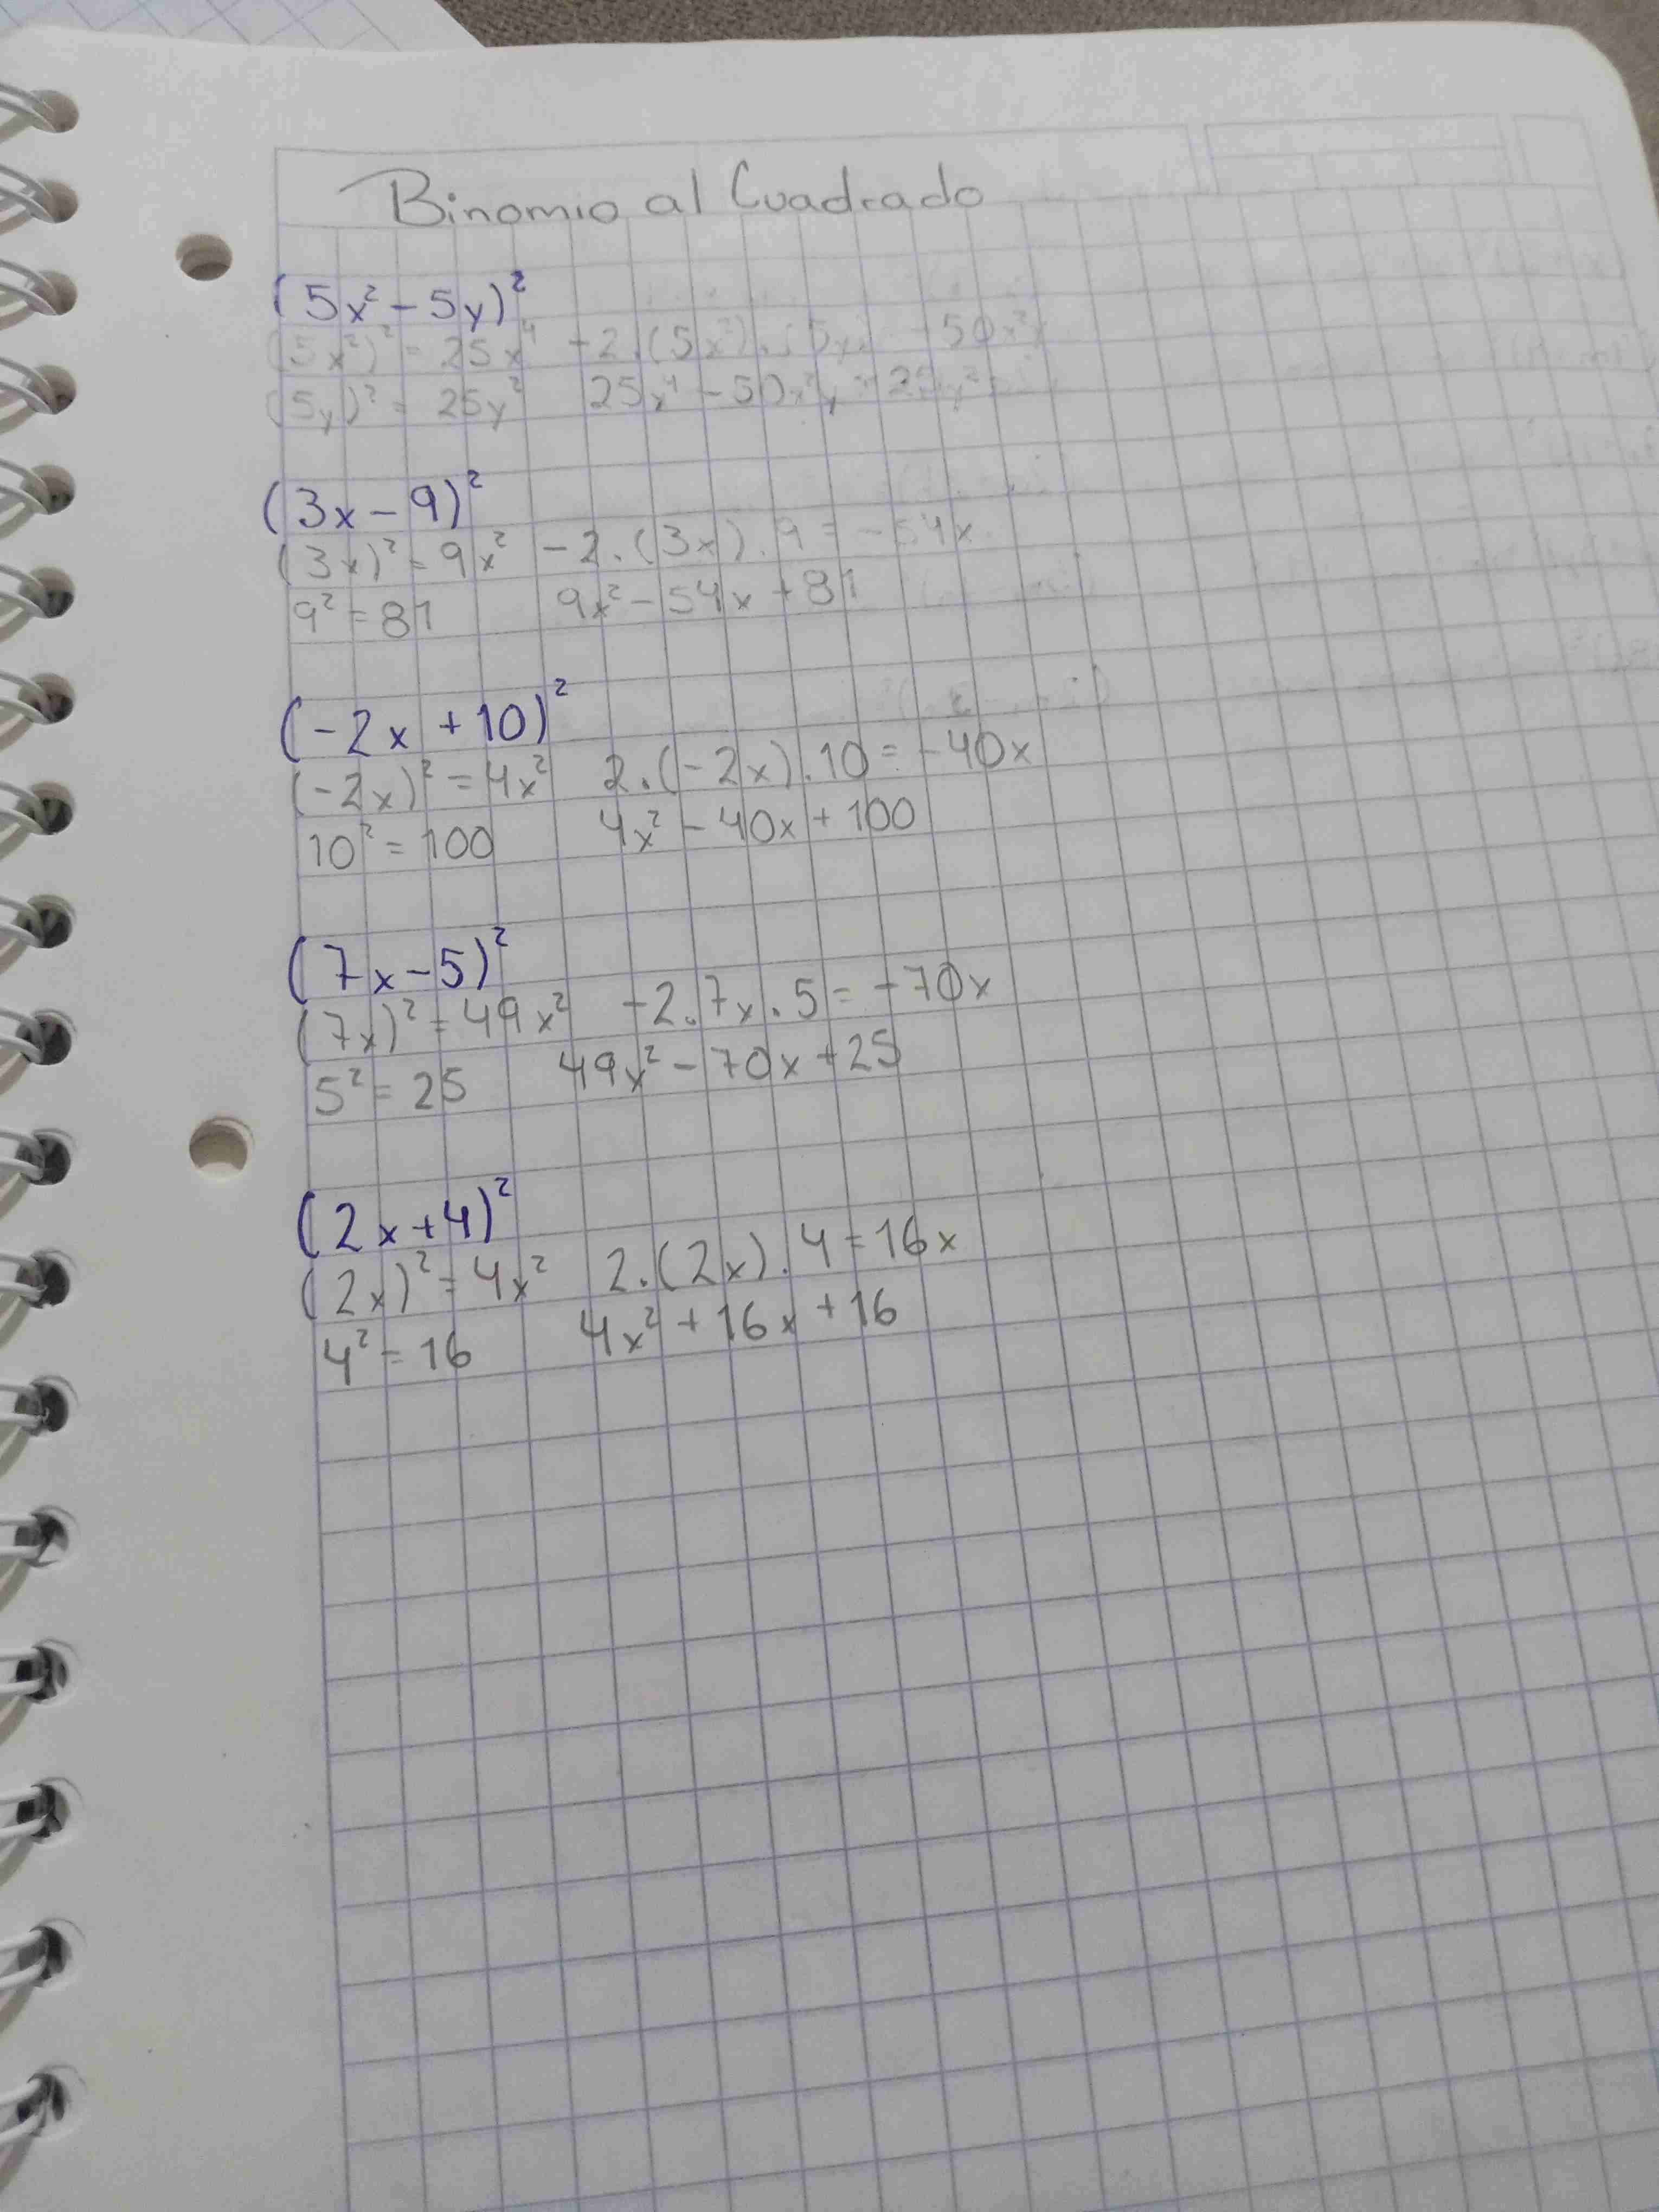 Binomio al Cuadrado
(5x² - 5y)²
(5x²)² = 25x⁴ -2.(5x²).(5y) -50x²y
(5y)² = 25y² 25x⁴ - 50x²y + 25y²
(3x - 9)²
(3x)² = 9x² -2.(3x).9 = -54x
9² = 81 9x² - 54x + 81
(-2x + 10)²
(-2x)² = 4x² 2.(-2x).10 = -40x
10² = 100 4x² - 40x + 100
(7x - 5)²
(7x)² = 49x² -2.7x.5 = -70x
5² = 25 49x² - 70x + 25
(2x + 4)²
(2x)² = 4x² 2.(2x).4 = 16x
4² = 16 4x² + 16x + 16